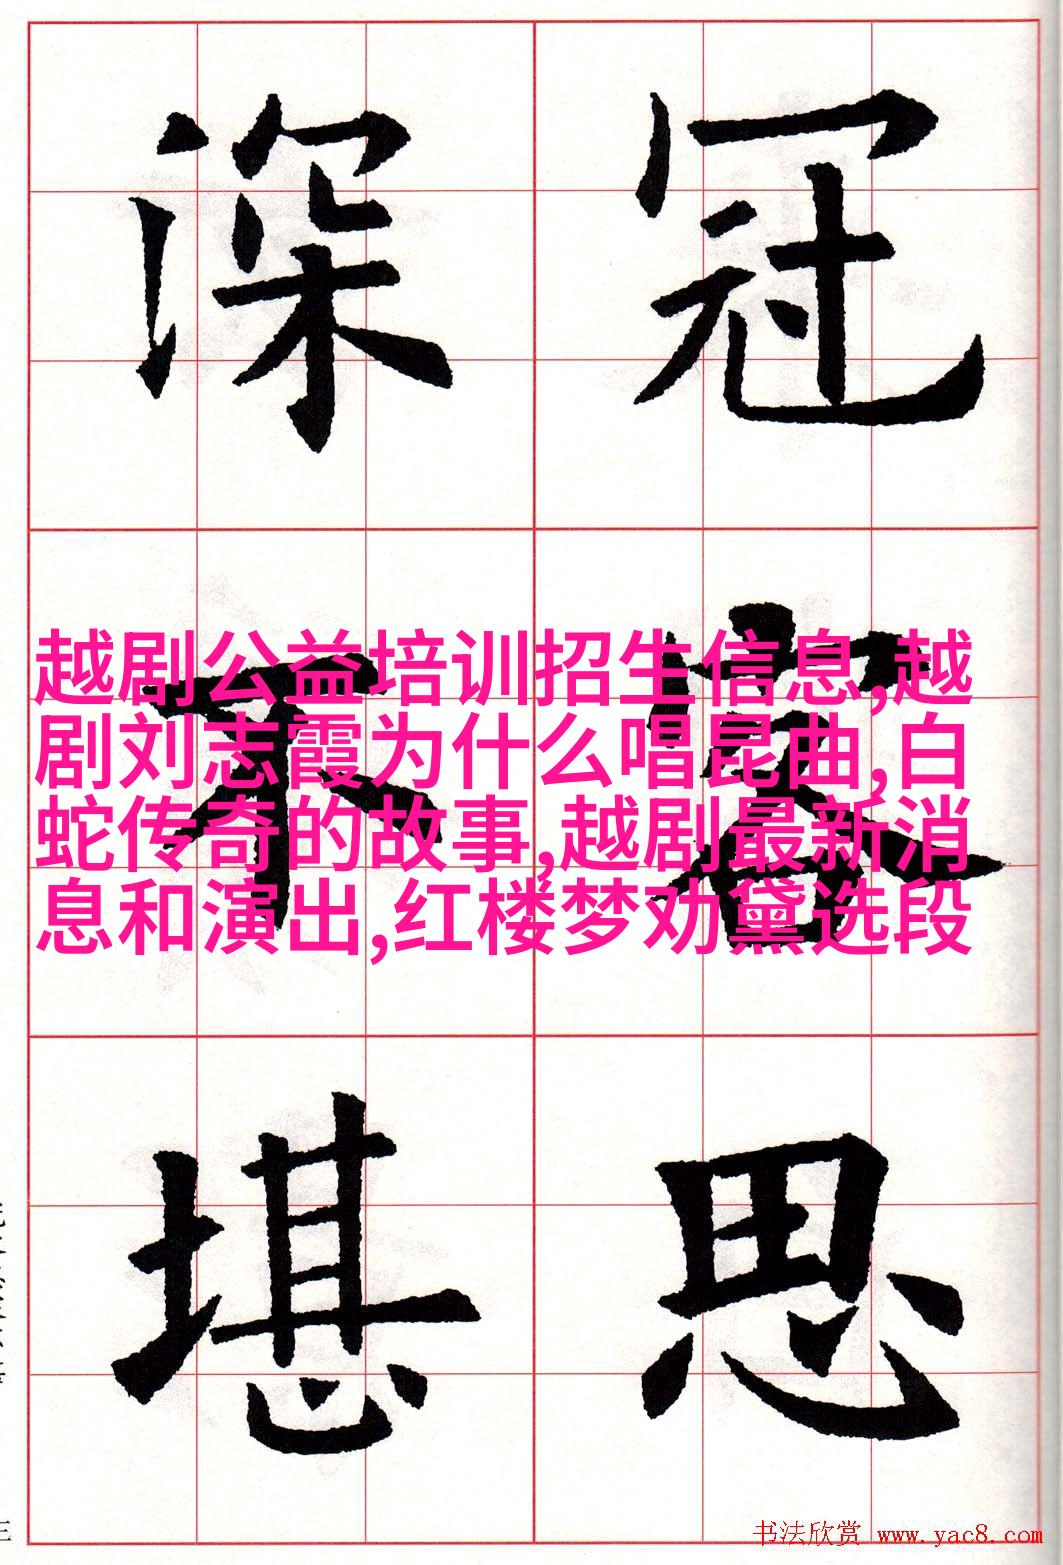 深冠
不客
堪思
越剧公益培训招生信息,越
剧刘志霞为什么唱昆曲,白
蛇传奇的故事,越剧最新消
息和演出,红楼梦劝黛选段
书法欣赏 www.yac8.com